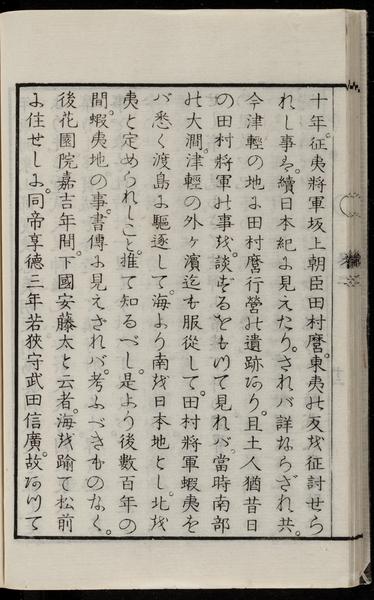 十年。征夷將軍坂上朝臣田村麿。東夷の反を征討せら
れし事は。續日本紀に見えたり。されバ詳ならざれ共。
今津輕の地に田村麿行營の遺跡あり。且土人猶昔日
の田村將軍の事を。談するをもつて見れバ。當時南部
の大澗。津輕の外ヶ濱迄も服從して。田村將軍蝦夷を
バ悉く渡島に驅逐して。海より南を日本地とし。北を
夷と定められしこと。推て知るべし。是より後數百年の
間。蝦夷地の事。書傳に見えされバ。考ふべきものなく。
後花園院嘉吉年間。下國安藤太と云者。海を踰て松前
に住せしに。同帝享德三年若狹守武田信廣。故あつて